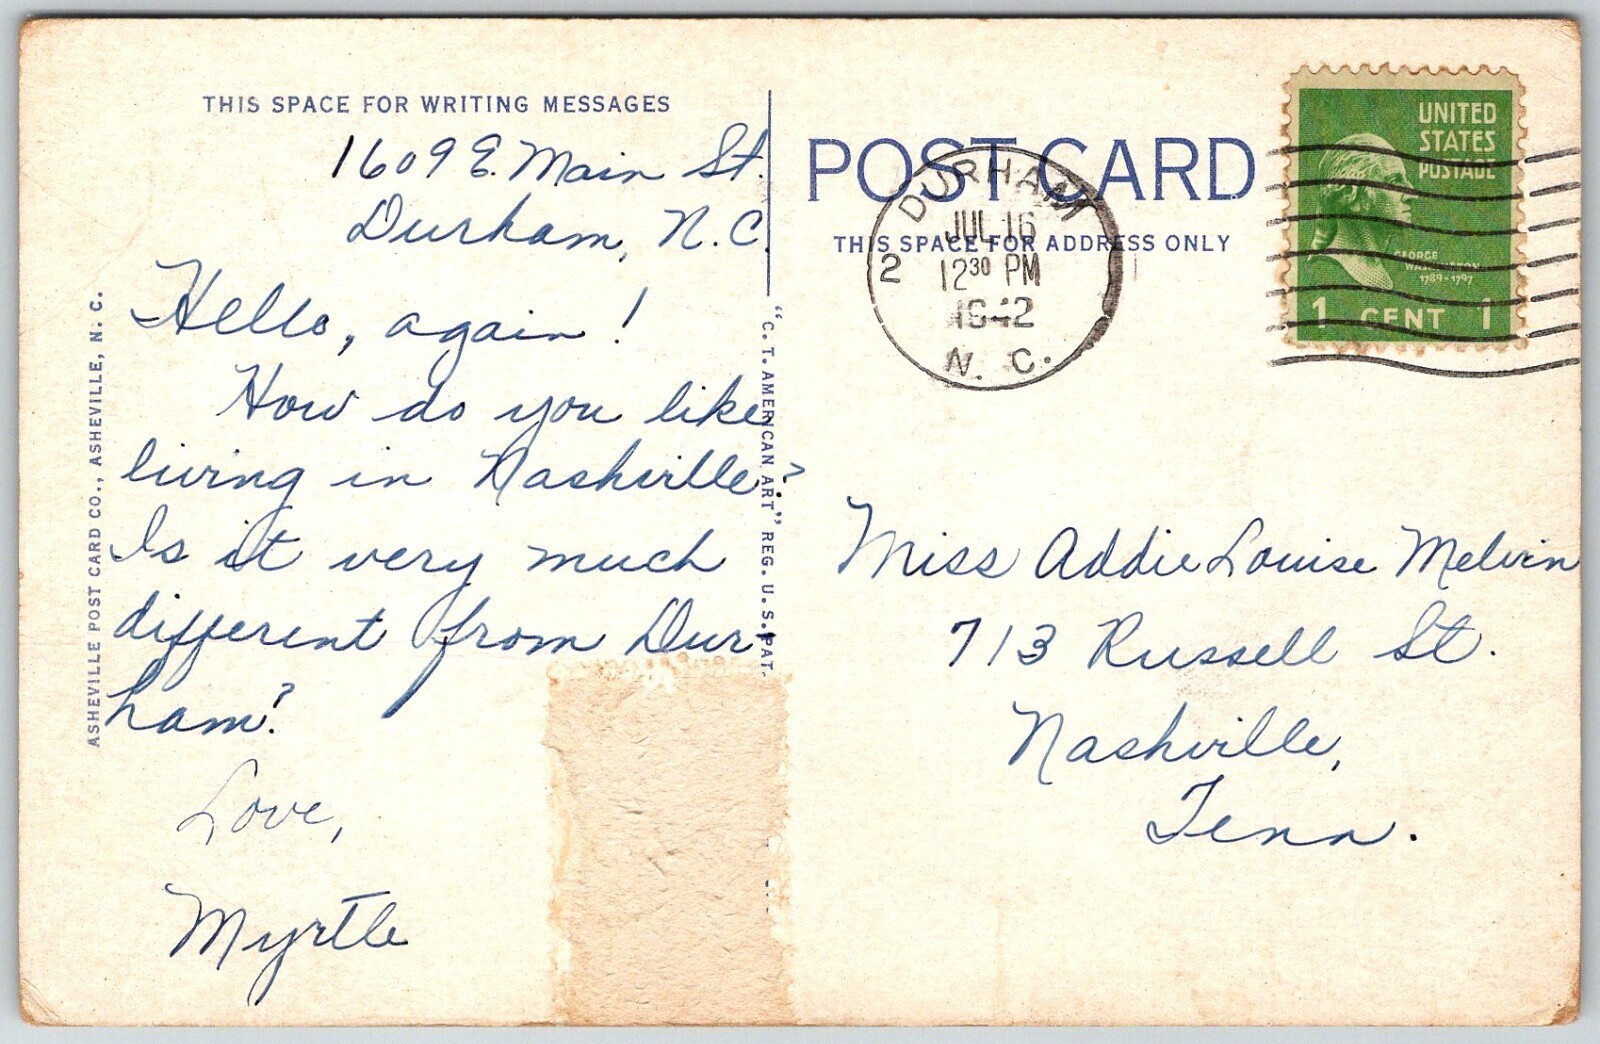 THIS SPACE FOR WRITING MESSAGES
1609 E. Main St.
Durham, N.C.
Hello, again!
How do you like
living in Nashville?
Is it very much
different from Dur-
ham?
Love,
Myrtle
ASHEVILLE POST CARD CO., ASHEVILLE, N. C.
"C. T. AMERICAN ART" REG. U. S. PAT.
POST CARD
THIS SPACE FOR ADDRESS ONLY
DURHAM
JUL 16
12 30 PM
1942
N. C.
2
UNITED
STATES
POSTAGE
GEORGE
WASHINGTON
1789-1797
1 CENT 1
Miss Addie Louise Melvin
713 Russell St.
Nashville,
Tenn.